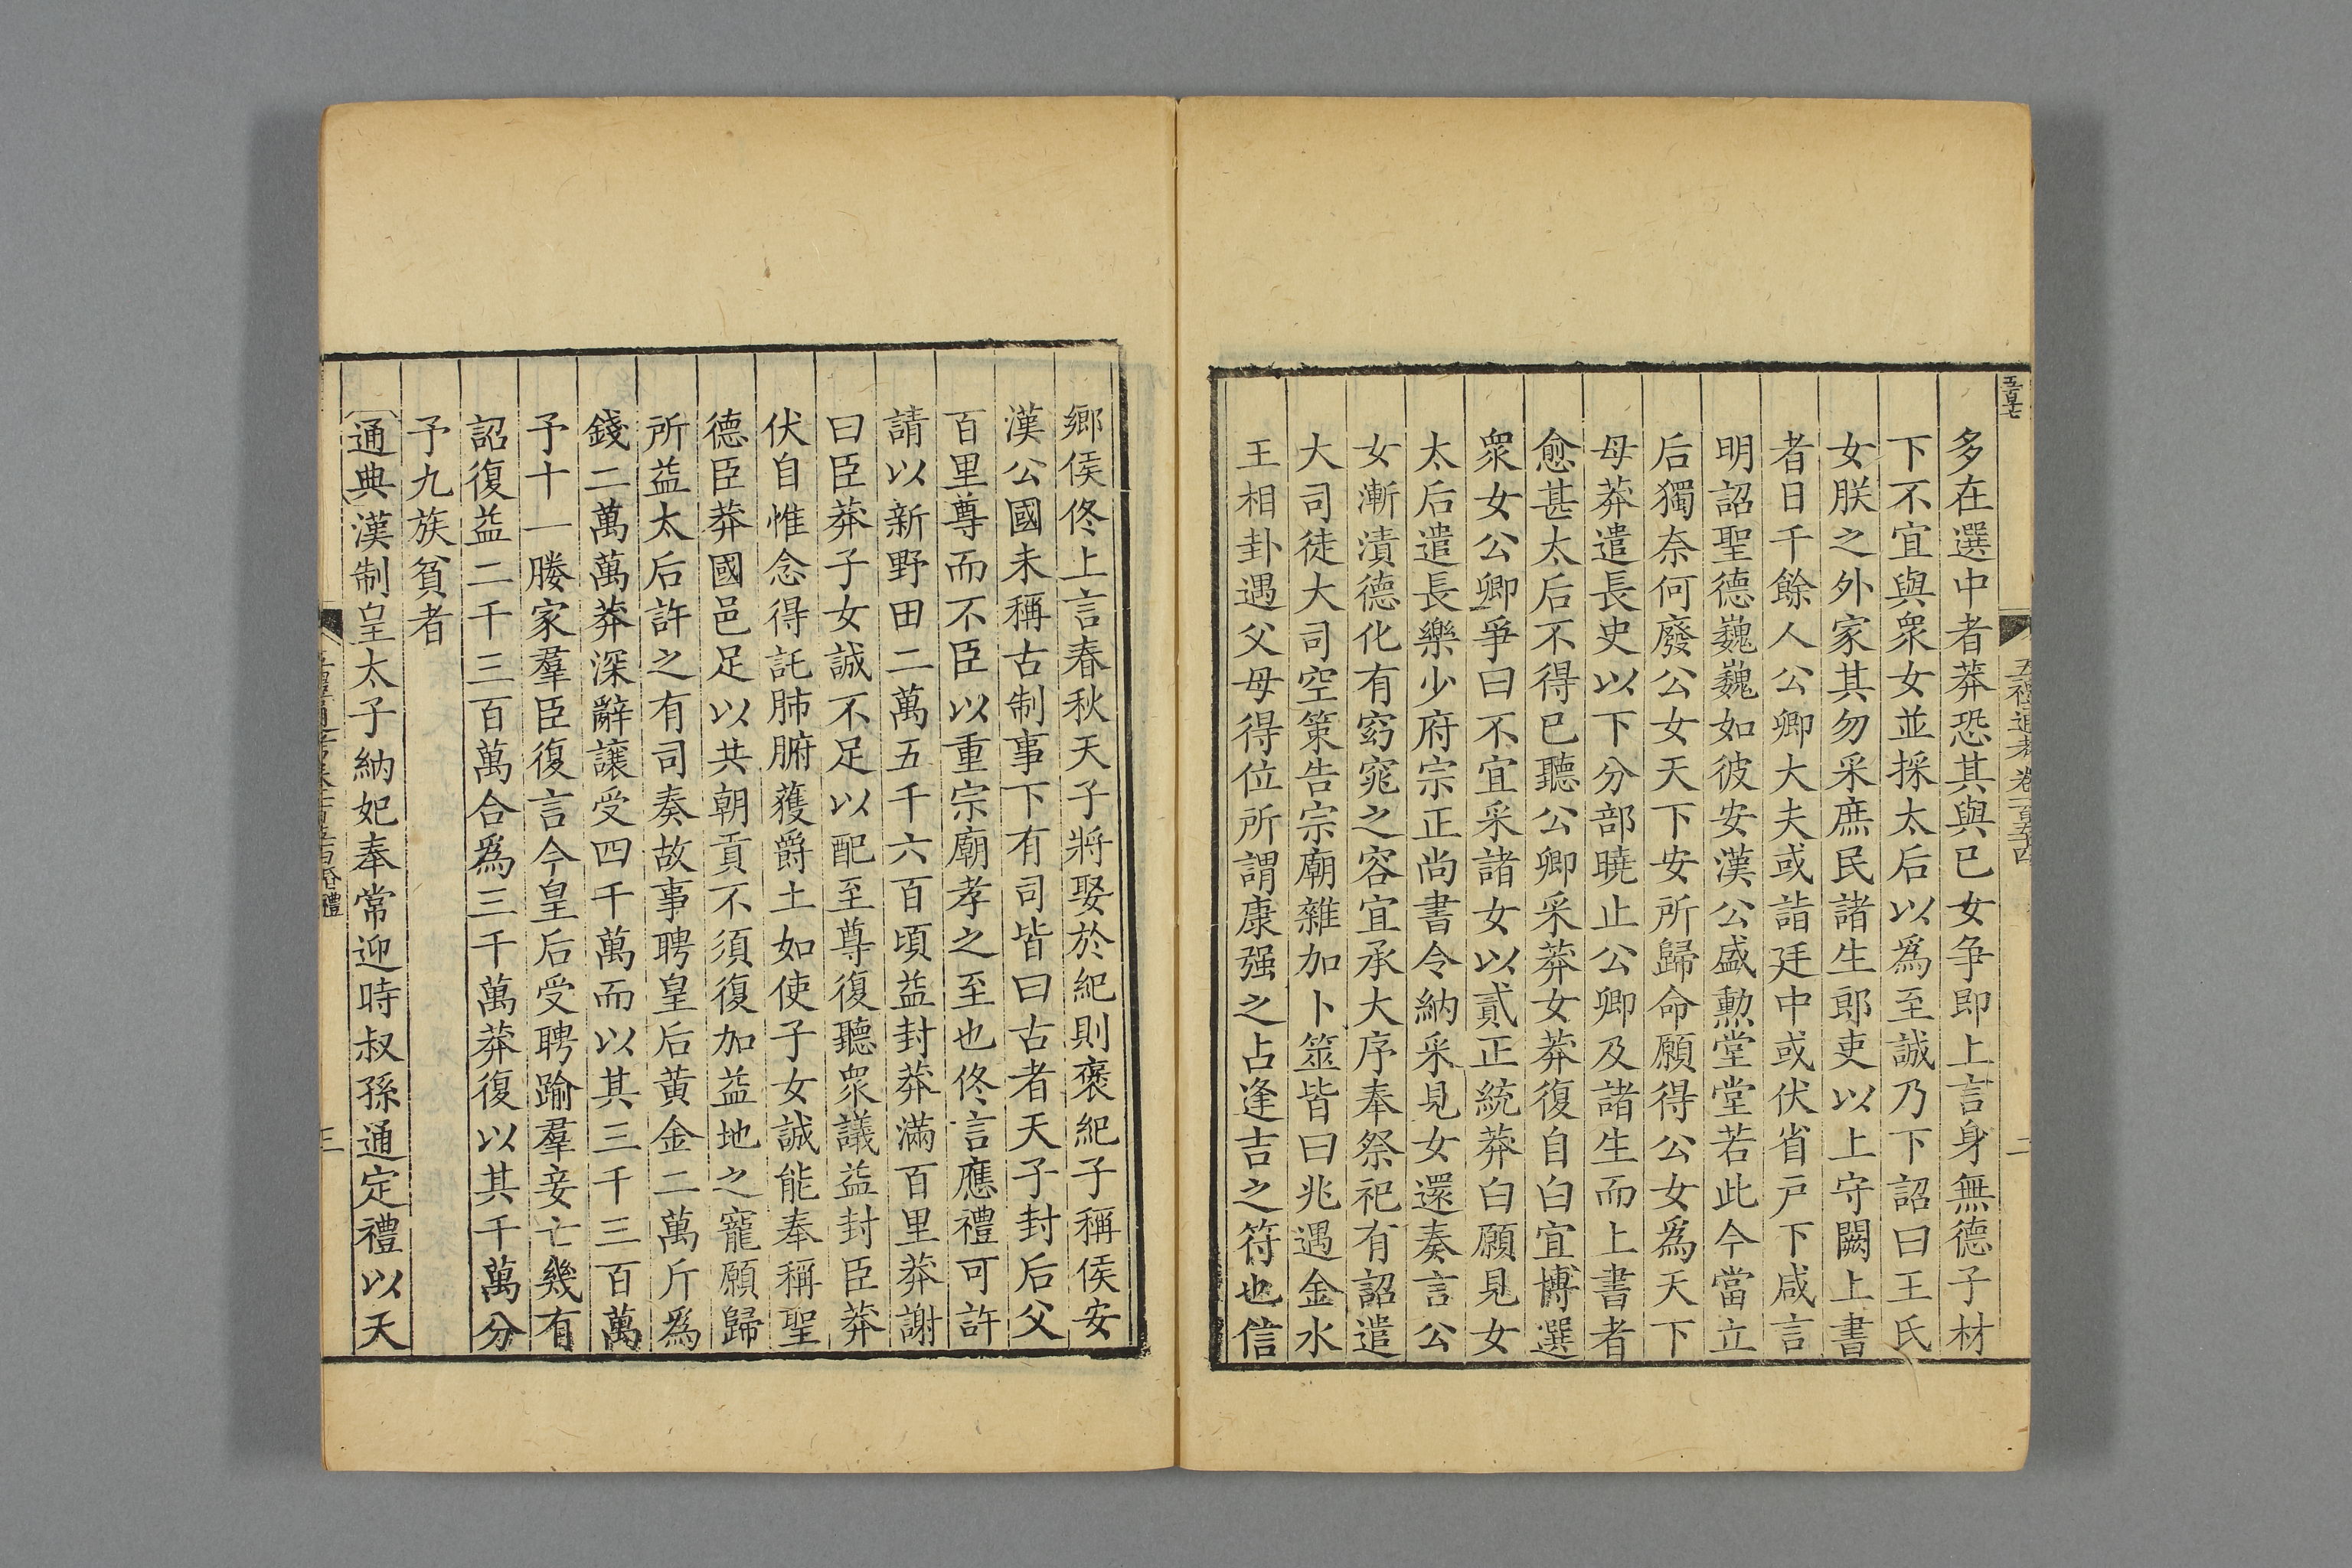 五百七
五禮通考卷一百五十四
二
多在選中者莽恐其與已女争即上言身無德子材
下不宜與衆女並採太后以爲至誠乃下詔曰王氏
女朕之外家其勿采庶民諸生郎吏以上守闕上書
者日千餘人公卿大夫或詣廷中或伏省戸下咸言
明詔聖德巍巍如彼安漢公盛勲堂堂若此今當立
后獨奈何廢公女天下安所歸命願得公女爲天下
母莽遣長史以下分部曉止公卿及諸生而上書者
愈甚太后不得已聽公卿采莽女莽復自白宜博選
衆女公卿爭曰不宜采諸女以貳正統莽白願見女
太后遣長樂少府宗正尚書令納采見女還奏言公
女漸漬德化有窈窕之容宜承大序奉祭祀有詔遣
大司徒大司空策告宗廟雜加卜筮皆曰兆遇金水
王相卦遇父母得位所謂康强之占逢吉之符也信
鄉侯佟上言春秋天子將娶於紀則褒紀子稱侯安
漢公國未稱古制事下有司皆曰古者天子封后父
百里尊而不臣以重宗廟孝之至也佟言應禮可許
請以新野田二萬五千六百頃益封莽滿百里莽謝
曰臣莽子女誠不足以配至尊復聽衆議益封臣莽
伏自惟念得託肺腑獲爵土如使子女誠能奉稱聖
德臣莽國邑足以共朝貢不須復加益地之寵願歸
所益太后許之有司奏故事聘皇后黃金二萬斤爲
錢二萬萬莽深辭讓受四千萬而以其三千三百萬
予十一媵家羣臣復言今皇后受聘踰羣妾亡幾有
詔復益二千三百萬合爲三千萬莽復以其千萬分
予九族貧者
通典漢制皇太子納妃奉常迎時叔孫通定禮以天
昏禮
三